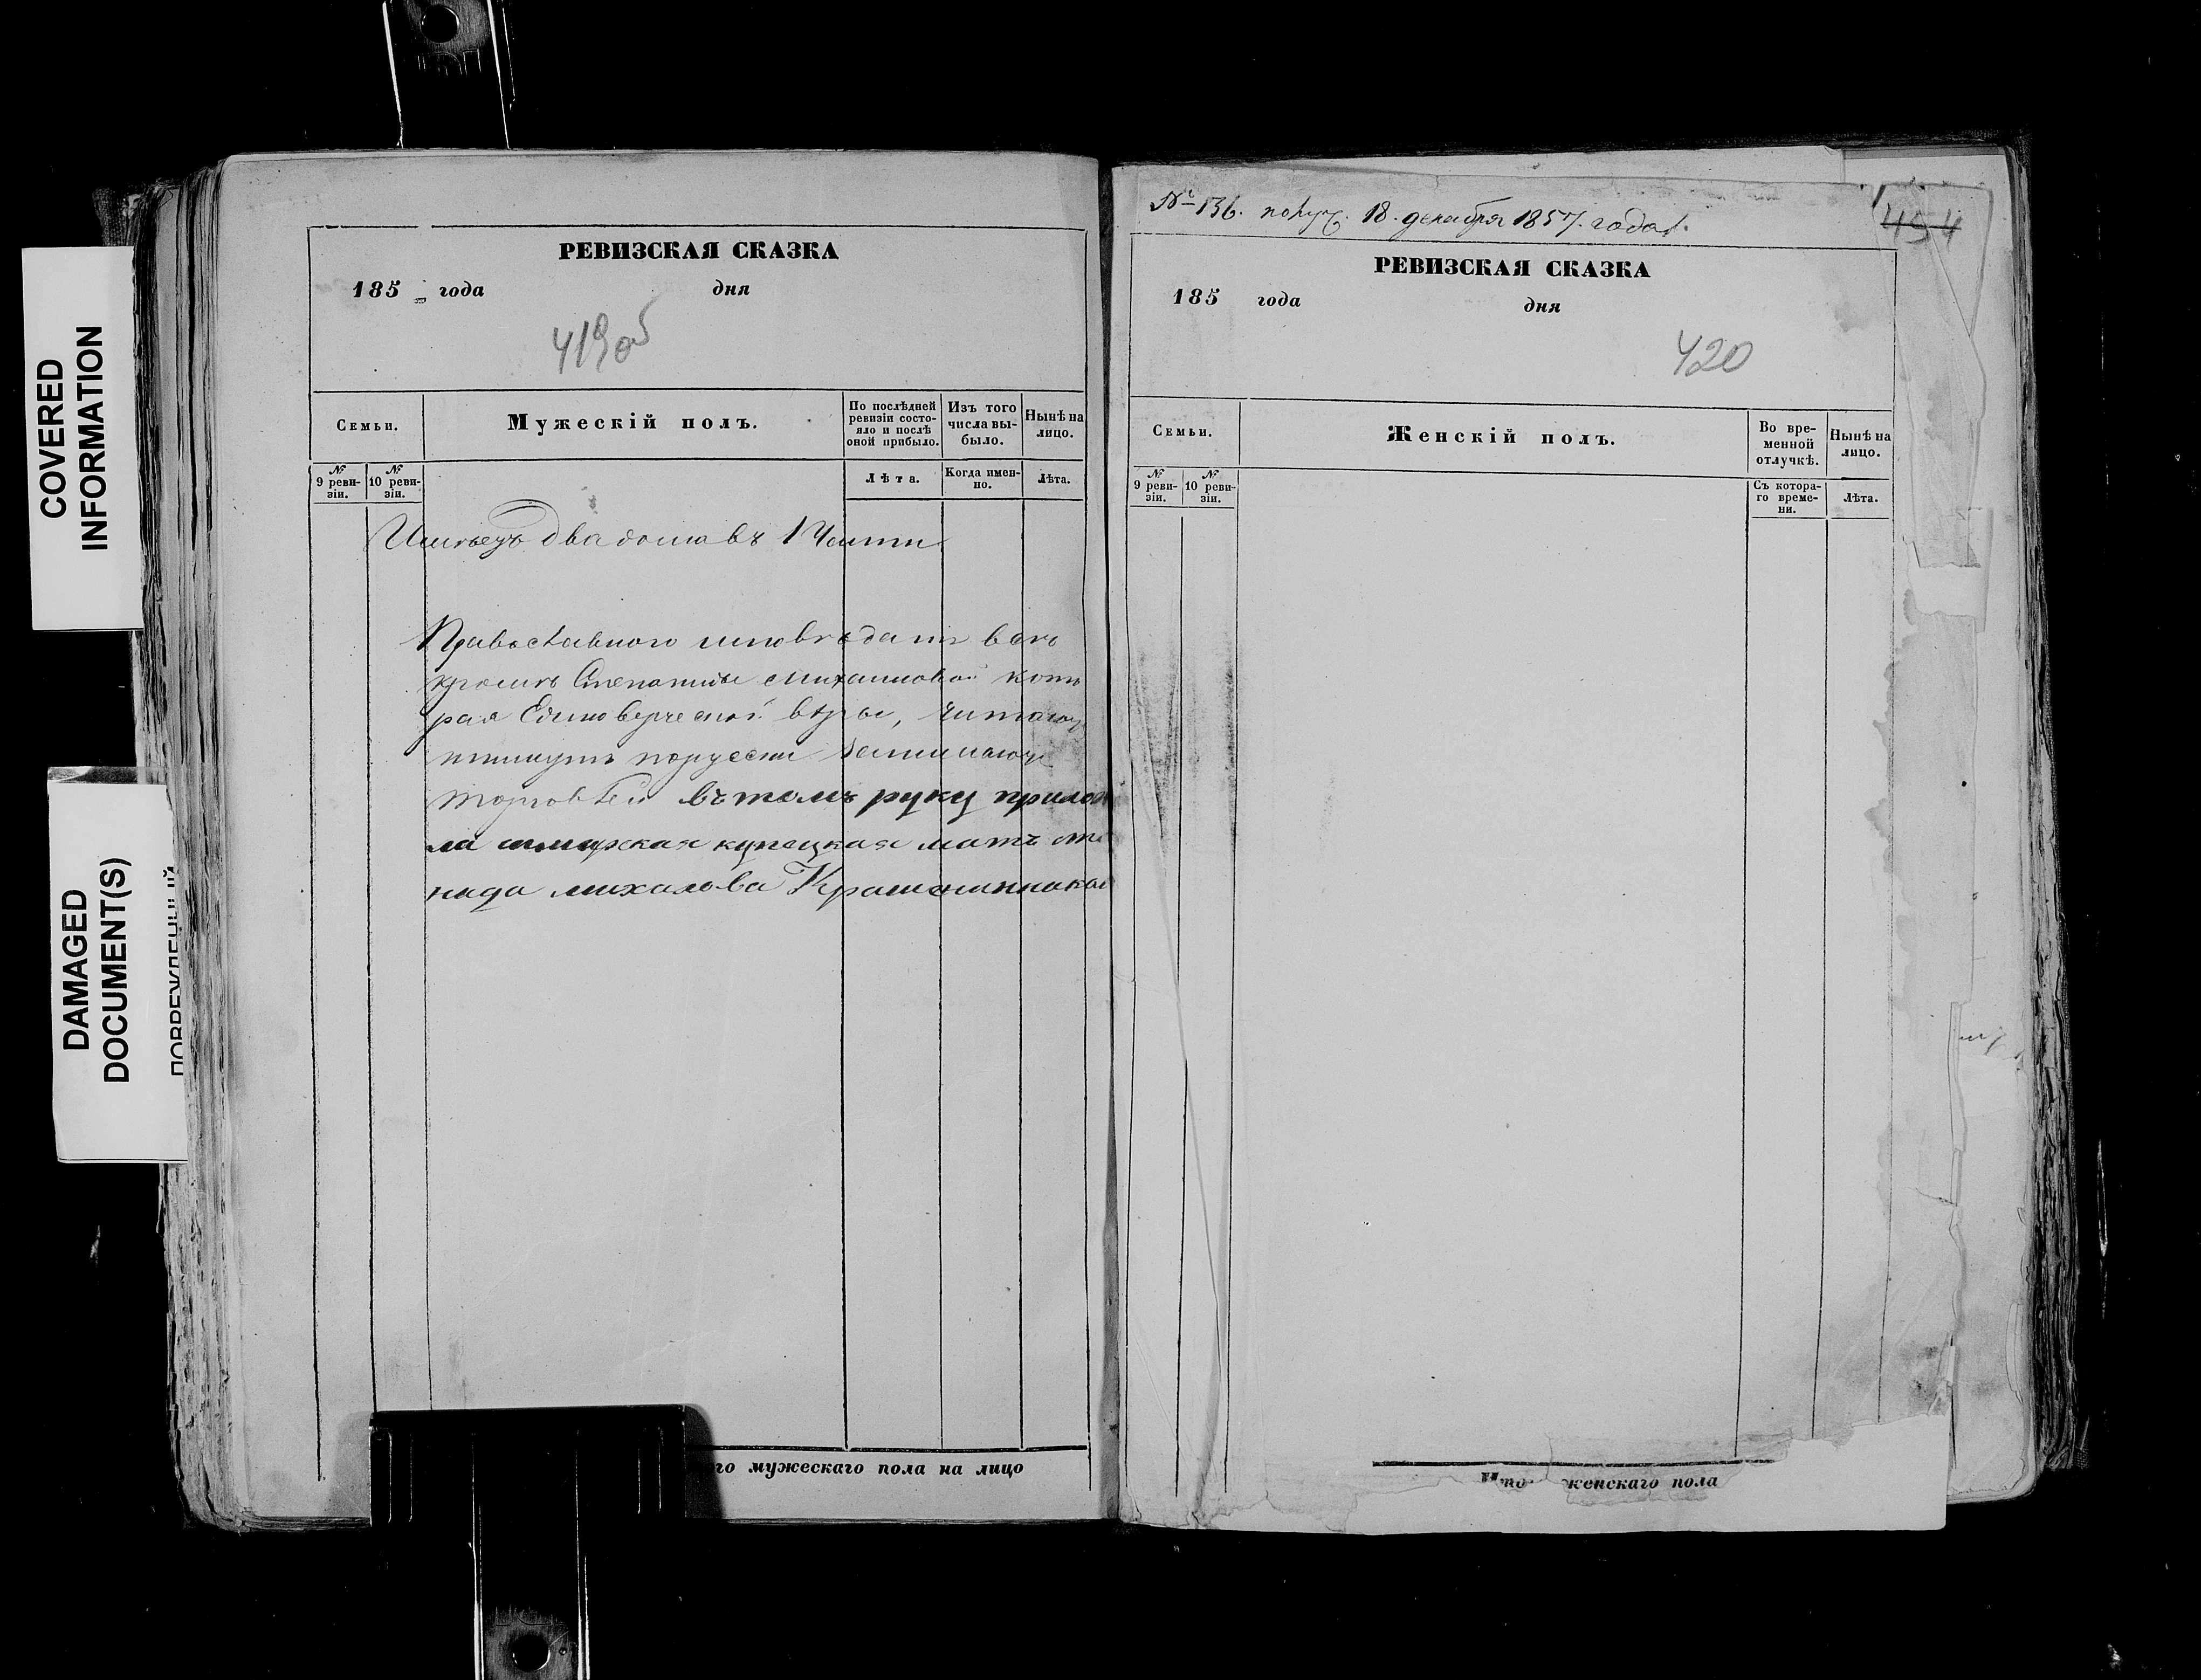 COVERED
INFORMATION
DAMAGED
DOCUMENT(S)
ПОВРЕЖДЕННЫЙ
РЕВИЗСКАЯ СКАЗКА
185 года дня
419об
Семьи.
Мужескій полъ.
По послѣдней ревизіи состо-
яло и послѣ
оной прибыло.
Изъ того
числа вы-
было.
Нынѣ на
лицо.
№
9 реви-
зіи.
№
10 реви-
зіи.
Лѣта.
Когда имен-
но.
Лѣта.
два дома въ 1 Части
Православного
кромѣ михаиловой кото
рая Единоверческой веры, читаю
порусски
торговлей въ томъ руку прило
ла купецкая мать
нида михалова
го мужескаго пола на лицо
№ 136. получ. 18. декабря 1857. года.
454
РЕВИЗСКАЯ СКАЗКА
185 года дня
420
Семьи.
Женскій полъ.
Во вре-
менной
отлучкѣ.
Нынѣ на
лицо.
№
9 реви-
зіи.
№
10 реви-
зіи.
Съ котора-
го време-
ни.
Лѣта.
женскаго пола